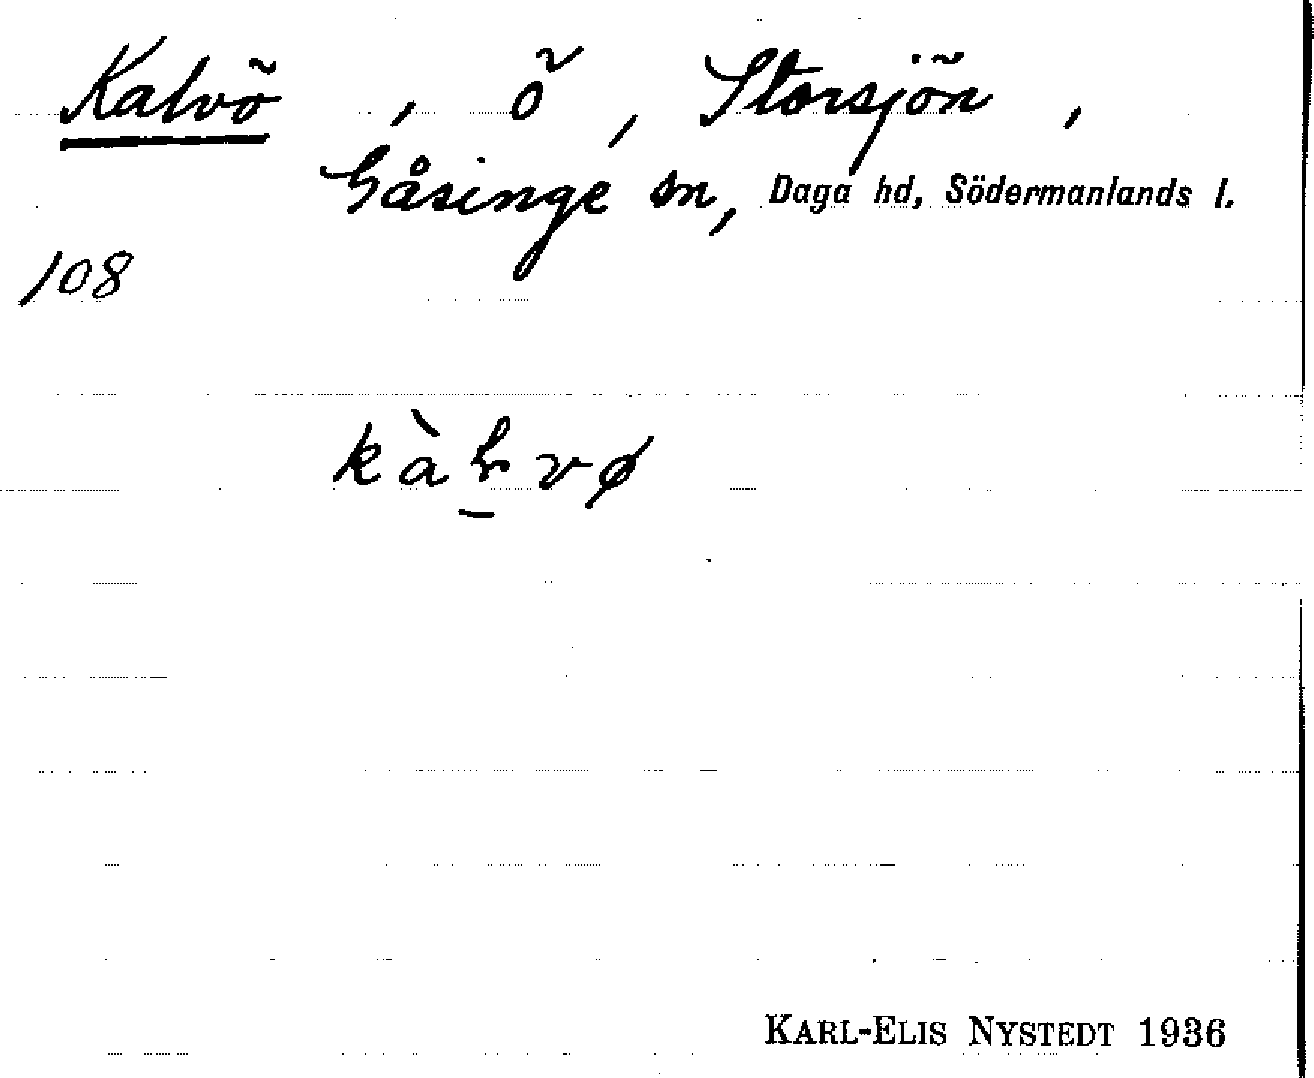 Kalvö, ö, Storsjön,
Gåsinge sn, Daga hd, Södermanlands l.
108
KARL-ELIS NYSTEDT 1936